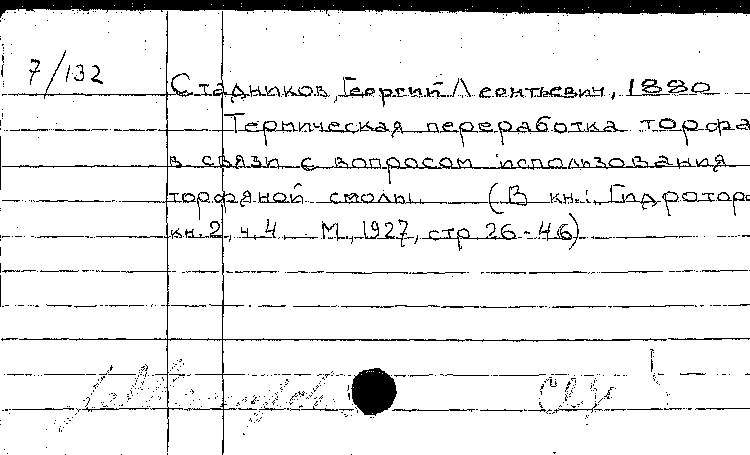 7/132
Стадников, Георгий Леонтьевич, 1880
Термическая переработка торфа
в связи с вопросом использования
торфяной смолы. (В кн.: Гидротор
кн. 2, ч. 4. М., 1927, стр. 26-46)